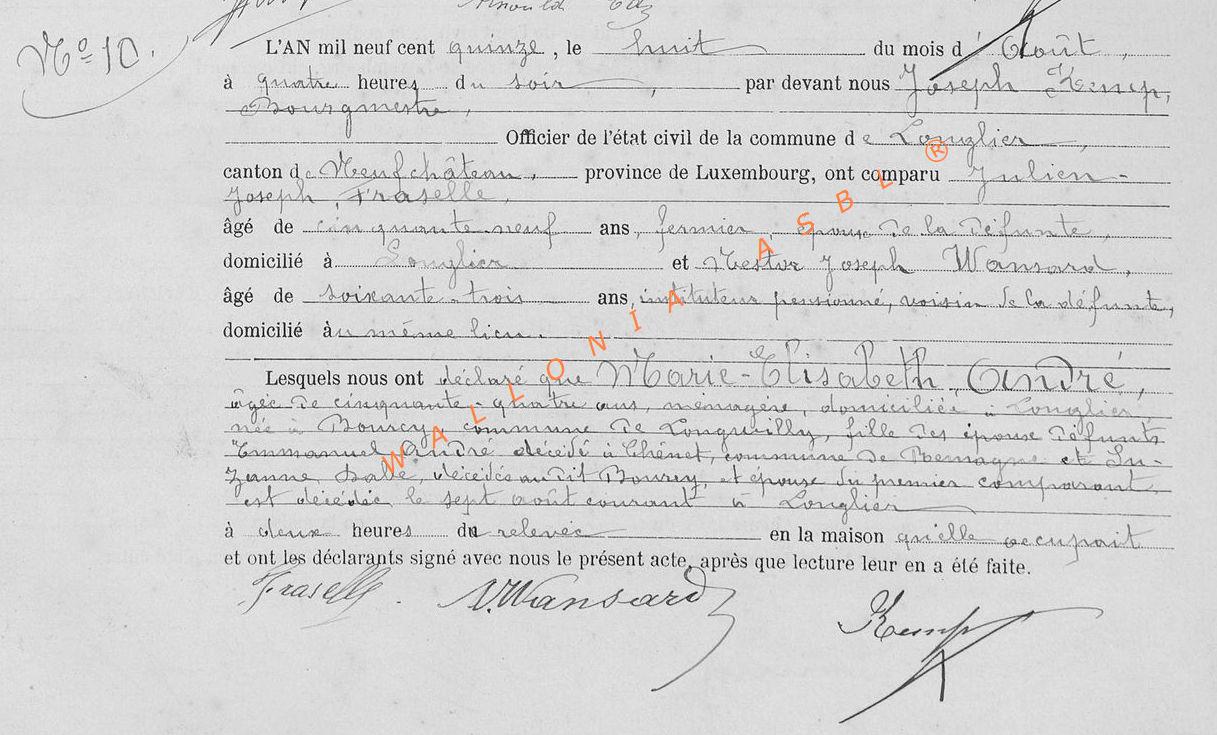 Arnould
No 10.
L'AN mil neuf cent quinze, le huit du mois d'Août,
à quatre heures du soir, par devant nous Joseph Kemp,
Bourgmestre,
Officier de l'état civil de la commune de Longlier,
canton de Neufchâteau, province de Luxembourg, ont comparu Julien-
Joseph Fraselle,
âgé de cinquante-neuf ans, fermier, époux de la défunte,
domicilié à Longlier et Nestor Joseph Wansard,
âgé de soixante-trois ans, instituteur pensionné, voisin de la défunte,
domicilié au même lieu.
Lesquels nous ont déclaré que Marie-Elisabeth André,
âgée de cinquante-quatre ans, ménagère, domiciliée à Longlier,
née à Bourcy, commune de Longvilly, fille des époux défunts
Emmanuel André décédé à Chênet, commune de Remagne et Su-
zanne, décédée au dit Bourcy, et épouse du premier comparant,
est décédée le sept août courant à Longlier
à deux heures du relevée en la maison qu'elle occupait
et ont les déclarants signé avec nous le présent acte, après que lecture leur en a été faite.
Fraselle. N. Wansard
Kemp
WALLONIA ASBL ®